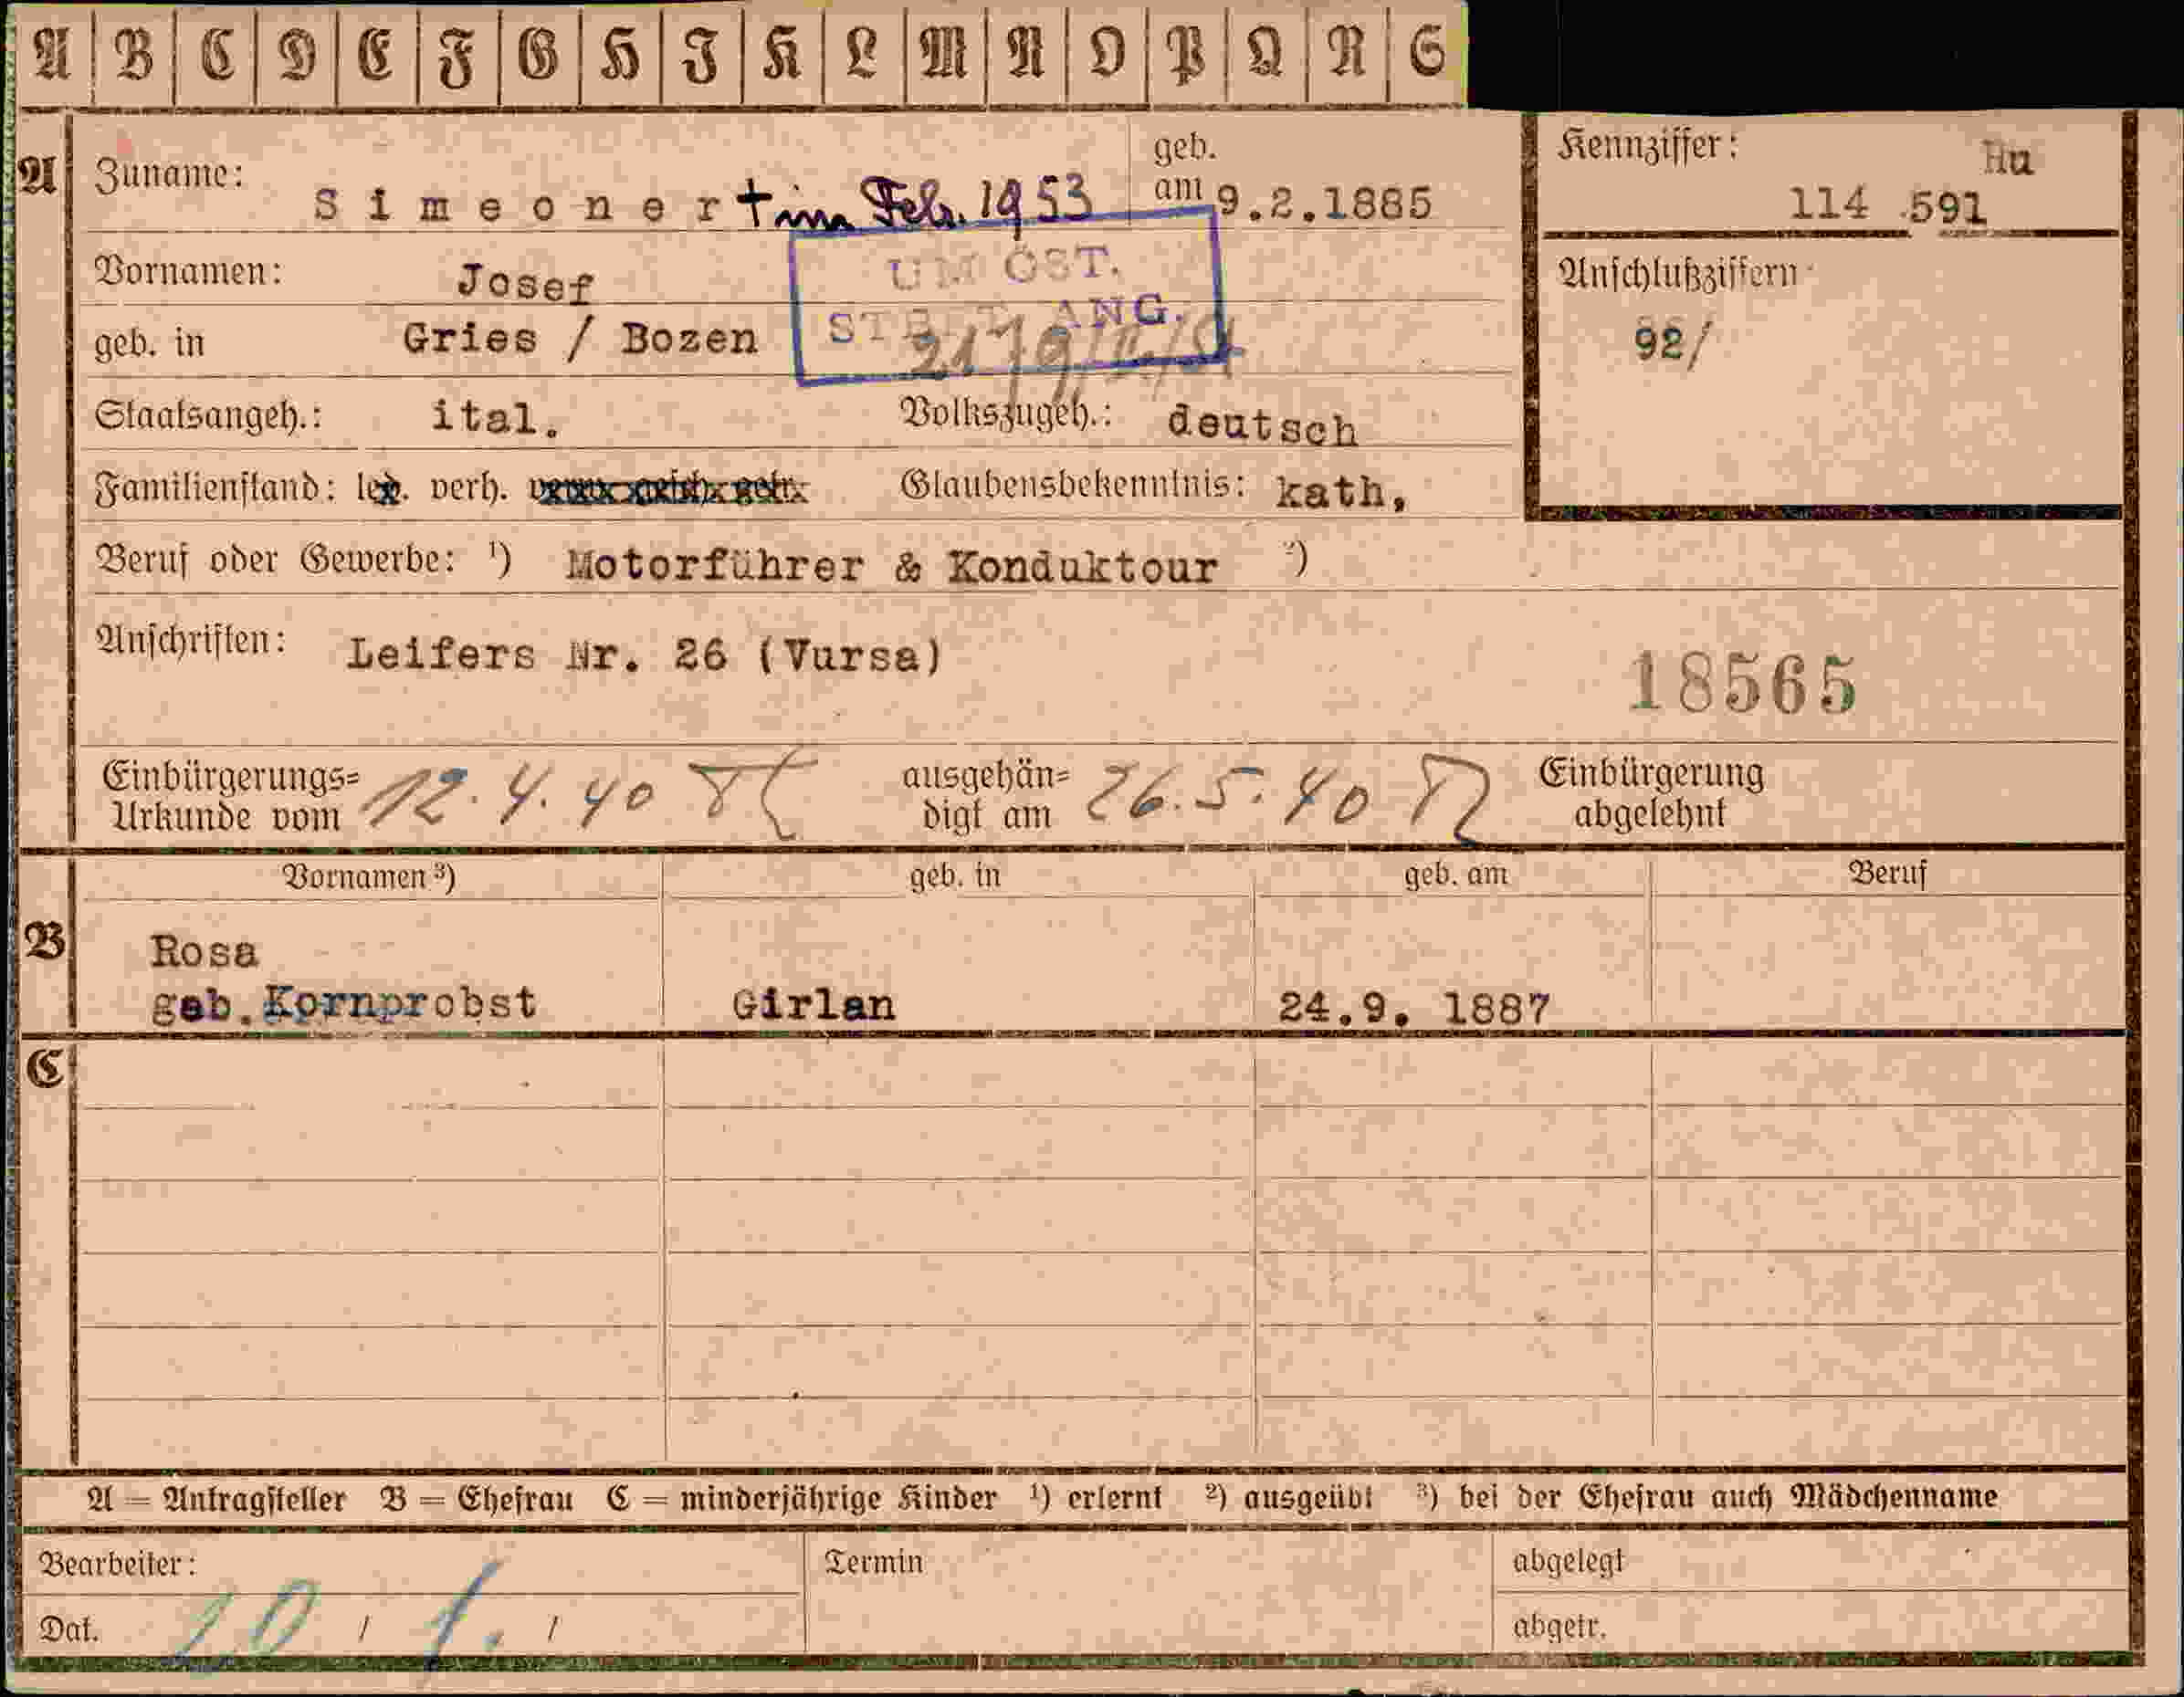 A B C D E F G H I K L M N O P Q R S
A Zuname: Simeoner † im Febr. 1953 geb. am 9.2.1885
Kennziffer: Hu
114.591
Vornamen: Josef
UM ÖST.
Anschlußziffern
92/
geb. in Gries / Bozen
ANG.
Staatsangeh.: ital. Volkszugeh.: deutsch
Familienstand: led. verh. Glaubensbekenntnis: kath,
Beruf oder Gewerbe: ¹) Motorführer & Konduktour ²)
Anschriften: Leifers Nr. 26 (Vursa)
18565
Einbürgerungs= Urkunde vom 12.4.40 ausgehän= digt am 26.5.40 Einbürgerung abgelehnt
Vornamen ³) geb. in geb. am Beruf
B Rosa
geb. Kornprobst Girlan 24.9. 1887
C
A = Antragsteller B = Ehefrau C = minderjährige Kinder ¹) erlernt ²) ausgeübt ³) bei der Ehefrau auch Mädchenname
Bearbeiter: Termin abgelegt
Dat. 20 / / abgetr.